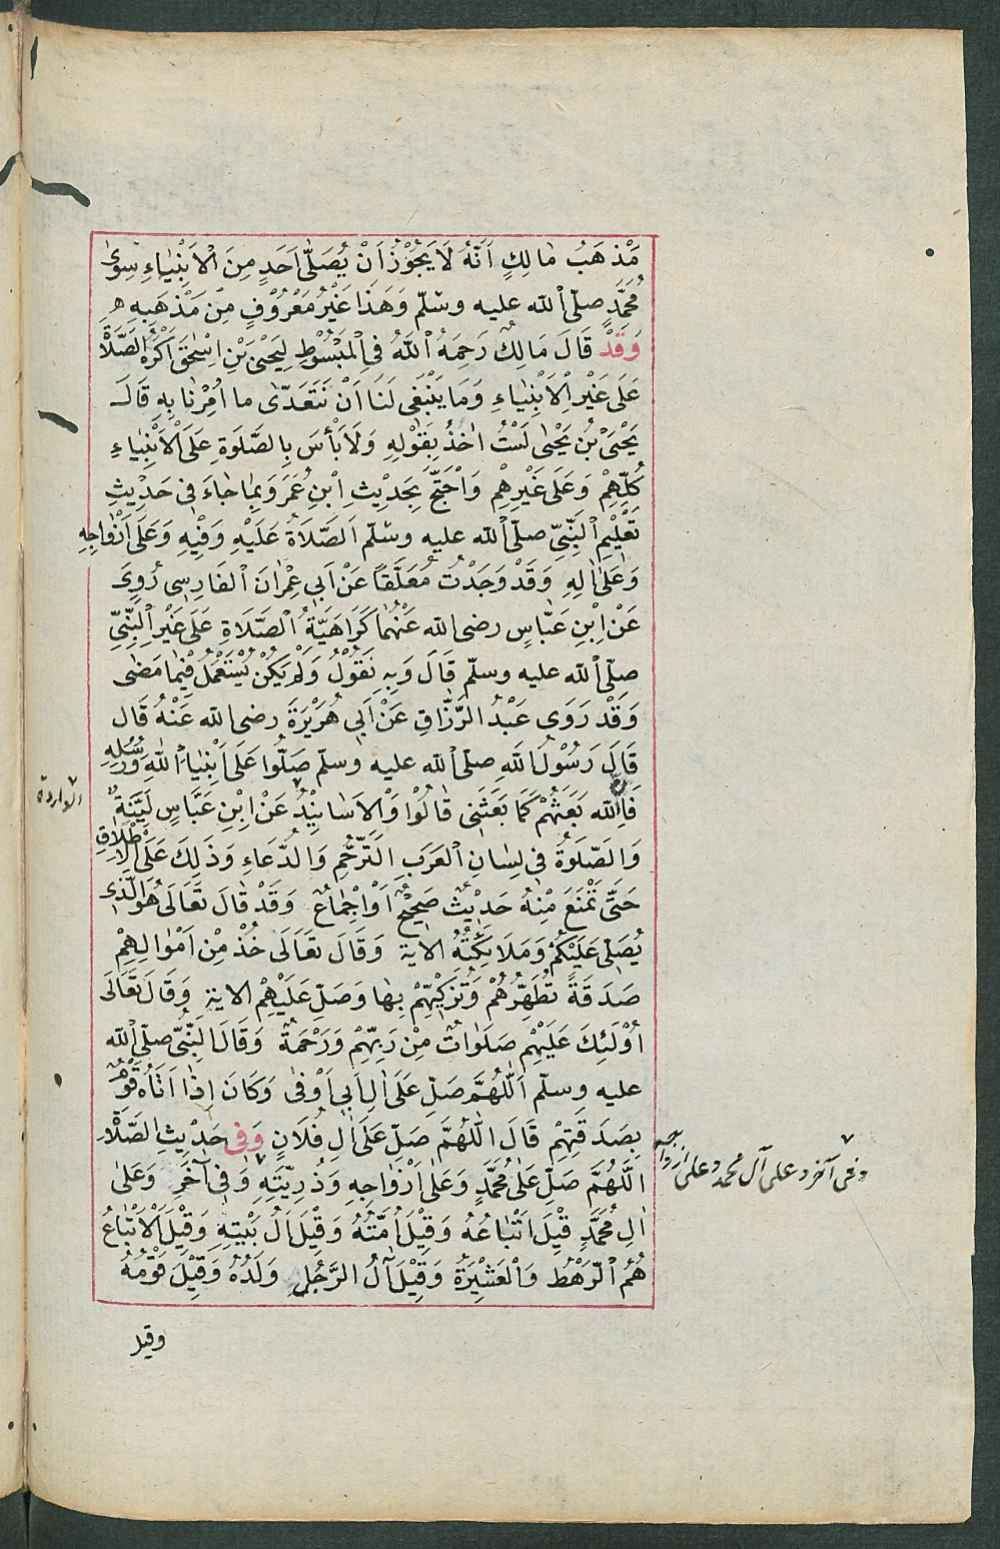 مَذْهَبُ مَالِكٍ اَنَّهُ لَا يَجُوْزُ اَنْ يُصَلّٰى اَحَدٍ مِنَ الْاَنْبِيَاءِ سِوٰى
مُحَمَّدٍ صلّى الله عليه وسلّم وَهٰذَا غَيْرُ مَعْرُوْفٍ مِنْ مَذْهَبِهِ
وَقَدْ قَالَ مَالِكٌ رَحِمَهُ اللهُ فِى الْمَبْسُوْطِ لِيَحْيٰىَ بْنِ اِسْحٰقَ اَكْرَهُ الصَّلَاةَ
عَلٰى غَيْرِ الْاَنْبِيَاءِ وَمَا يَنْبَغِى لَنَا اَنْ نَتَعَدّٰى ما اُمِرْنَا بِهِ قَالَ
يَحْيٰىَ بْنُ يَحْيٰى لَسْتُ اٰخُذُ بِقَوْلِهِ وَلَا بَأْسَ بِالصَّلٰوةِ عَلَى الْاَنْبِيَاءِ
كُلِّهِمْ وَعَلٰى غَيْرِهِمْ وَاحْتَجَّ بِحَدِيْثِ ابْنِ عُمَرَ وَبِمَا جَاءَ فِى حَدِيْثِ
تَعْلِيْمِ النَّبِىِّ صلّى الله عليه وسلّم اَلصَّلَاةُ عَلَيْهِ وَفِيْهِ وَعَلٰى اَزْوَاجِهِ
وَعَلٰى اٰلِهِ وَقَدْ وَجَدْتُ مُعَلَّقًا عَنْ اَبِى عِمْرَانَ الفَارِسِى رُوِىَ
عَنْ اِبْنِ عَبَّاسٍ رضى الله عَنْهُمَا كَرَاهِيَّةُ الصَّلَاةِ عَلٰى غَيْرِ النَّبِىِّ
صلّى الله عليه وسلّم قَالَ وَبِهِ نَقُوْلُ وَلَمْ يَكُنْ يُسْتَعْمَلُ فِيْمَا مَضٰى
وَقَدْ رَوَى عَبْدُ الرَّزَّاقِ عَنْ اَبِى هُرَيْرَةَ رضى الله عَنْهُ قَالَ
قَالَ رَسُوْلُ اللهِ صلّى الله عليه وسلّم صَلُّوا عَلٰى اَنْبِيَاءِ اللهِ وَرُسُلِهِ
فَاِنَّ الله بَعَثَهُمْ كَمَا بَعَثَنِى قَالُوْا وَالْاَسَانِيْدُ عَنْ اِبْنِ عَبَّاسٍ لَيِّنَةٌ
الواردة
وَالصَّلٰوةُ فِى لِسَانِ الْعَرَبِ التَّرَحُّمِ وَالدُّعَاءِ وَذٰلِكَ عَلَى الْاِطْلَاقِ
حَتّٰى تَمْنَعَ مِنْهُ حَدِيْثٌ صَحِيْحٌ اَوْ اِجْمَاعٌ وَقَدْ قَالَ تَعَالٰى هُوَ الَّذِى
يُصَلِّى عَلَيْكُمْ وَمَلٰئِكَتُهُ الاية وَقَالَ تَعَالٰى خُذْ مِنْ اَمْوَالِهِمْ
صَدَقَةً تُطَهِّرُهُمْ وَتُزَكِّيْهِمْ بِهَا وَصَلِّ عَلَيْهِمْ الاية وَقَالَ تَعَالٰى
اُوْلٰئِكَ عَلَيْهِمْ صَلَوَاتٌ مِنْ رَبِّهِمْ وَرَحْمَةٌ وَقَالَ النَّبِىُّ صلّى الله
عليه وسلّم اَللّٰهُمَّ صَلِّ عَلٰى اٰلِ اَبِى اَوْفٰى وَكَانَ اِذَا اَتَاهُ قَوْمٌ
بِصَدَقَتِهِمْ قَالَ اَللّٰهُمَّ صَلِّ عَلٰى اٰلِ فُلَانٍ وَفِى حَدِيْثِ الصَّلَاةِ
اَللّٰهُمَّ صَلِّ عَلٰى مُحَمَّدٍ وَعَلٰى اَزْوَاجِهِ وَذُرِّيَّتِهِ وَفِى آخَرِ وَعَلٰى
وفى آخر وعلى آل محمد وعلى ازواجه
اٰلِ مُحَمَّدٍ قِيْلَ اَتْبَاعُهُ وَقِيْلَ اُمَّتُهُ وَقِيْلَ اٰلُ بَيْتِهِ وَقِيْلَ الْاَتْبَاعُ
هُمُ الرَّهْطُ وَالْعَشِيْرَةُ وَقِيْلَ آلُ الرَّجُلِ وَلَدُهُ وَقِيْلَ قَوْمُهُ
وقيل